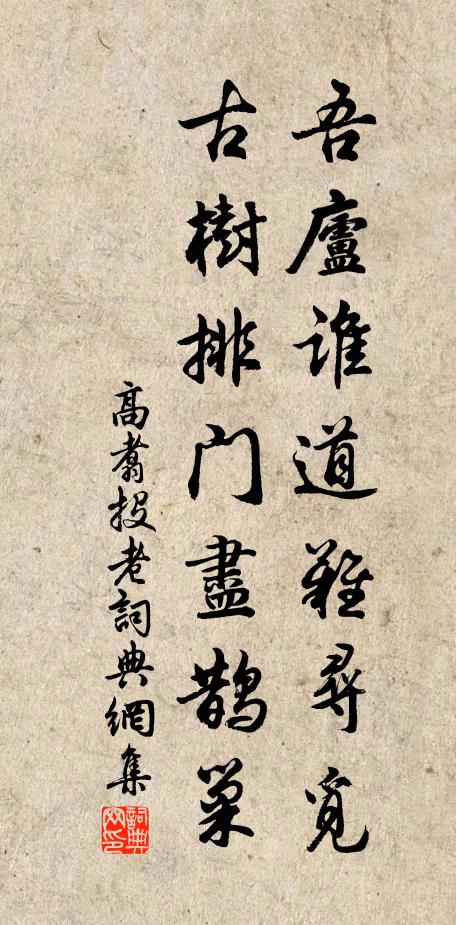 吾廬誰道難尋覓
古樹排門盡鵲巢
高翥投老詞典網集
詞典網印